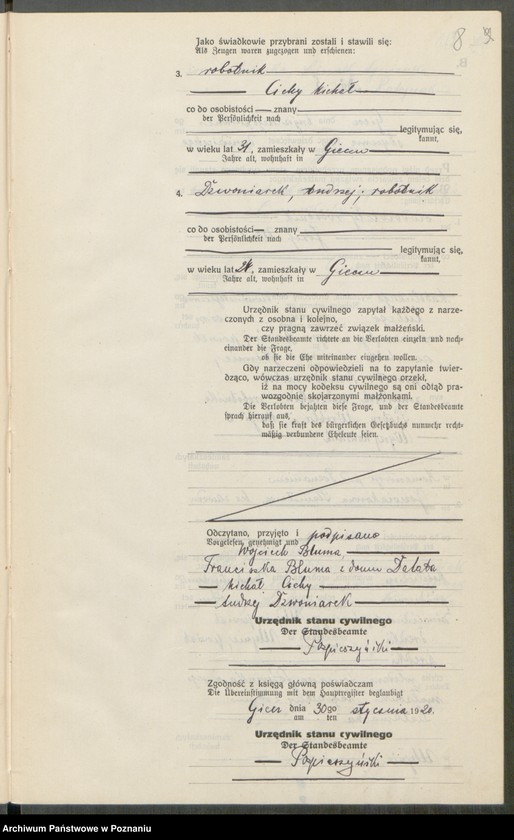 8
Jako świadkowie przybrani zostali i stawili się:
Als Zeugen waren zugezogen und erschienen:
3. robotnik
Cichy Michał
co do osobistości — znany
der Persönlichkeit nach
legitymując się,
kannt,
w wieku lat 31, zamieszkały w Giecu
Jahre alt, wohnhaft in
4. Dzwoniarek, Andrzej, robotnik
co do osobistości — znany
der Persönlichkeit nach
legitymując się,
kannt,
w wieku lat zamieszkały w Giecu
Jahre alt, wohnhaft in
Urzędnik stanu cywilnego zapytał każdego z narze-
czonych z osobna i kolejno,
czy pragną zawrzeć związek małżeński.
Der Standesbeamte richtete an die Verlobten einzeln und nach-
einander die Frage,
ob sie die Ehe miteinander eingehen wollen.
Gdy narzeczeni odpowiedzieli na to zapytanie twier-
dząco, wówczas urzędnik stanu cywilnego orzekł,
iż na mocy kodeksu cywilnego są oni odtąd pra-
wozgodnie skojarzonymi małżonkami.
Die Verlobten bejahten diese Frage, und der Standesbeamte
sprach hierauf aus,
daß sie kraft des bürgerlichen Gesetzbuchs nunmehr recht-
mäßig verbundene Eheleute seien.
Odczytano, przyjęto i podpisano
Vorgelesen, genehmigt und
Wojciech Bluma
Franciszka Bluma z domu Tataba
Michał Cichy
Andrzej Dzwoniarek
Urzędnik stanu cywilnego
Der Standesbeamte
Popierzyński
Zgodność z księgą główną poświadczam
Die Übereinstimmung mit dem Hauptregister beglaubigt
Giecz dnia 30go stycznia 1920.
am ten
Urzędnik stanu cywilnego
Der Standesbeamte
Popierzyński
Archiwum Państwowe w Poznaniu